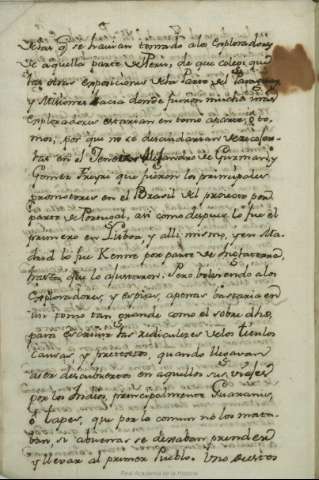 que se havian tomado a los Exploradores
de aquella parte de Perú, de que colegi que
las otras expediciones de la parte del Paraguay
y Misiones hacia donde fueron mucho mas
Exploradores estarian en tomo aparte, ó to-
mos; por que no se descuidarian de
en el Teniente Alejandro de Guzman, y
Gomez Freyre que fueron los principales
promotores en el Brasil del proyecto por
parte de Portugal, asi como despues lo fue el
primero en Lisboa, y alli mismo, y en Ma-
drid lo fue Keene por parte de Inglaterra,
hasta que lo ajustaron. Pero bolviendo a los
Exploradores, y espias, apenas bastaria en
un tomo tan grande como el sobre dho,
para escrivir las ridiculezes de los titulos
causas, y pretextos, quando llegavan
a ser descubiertos en aquellos sus viages
por los Indios, principalmente Guaranis,
ó Tapes, que por lo comun no los mata-
ban, si a buenas se dejaban prender
y llevar al primer Pueblo. Uno de estos
Real Academia de la Historia